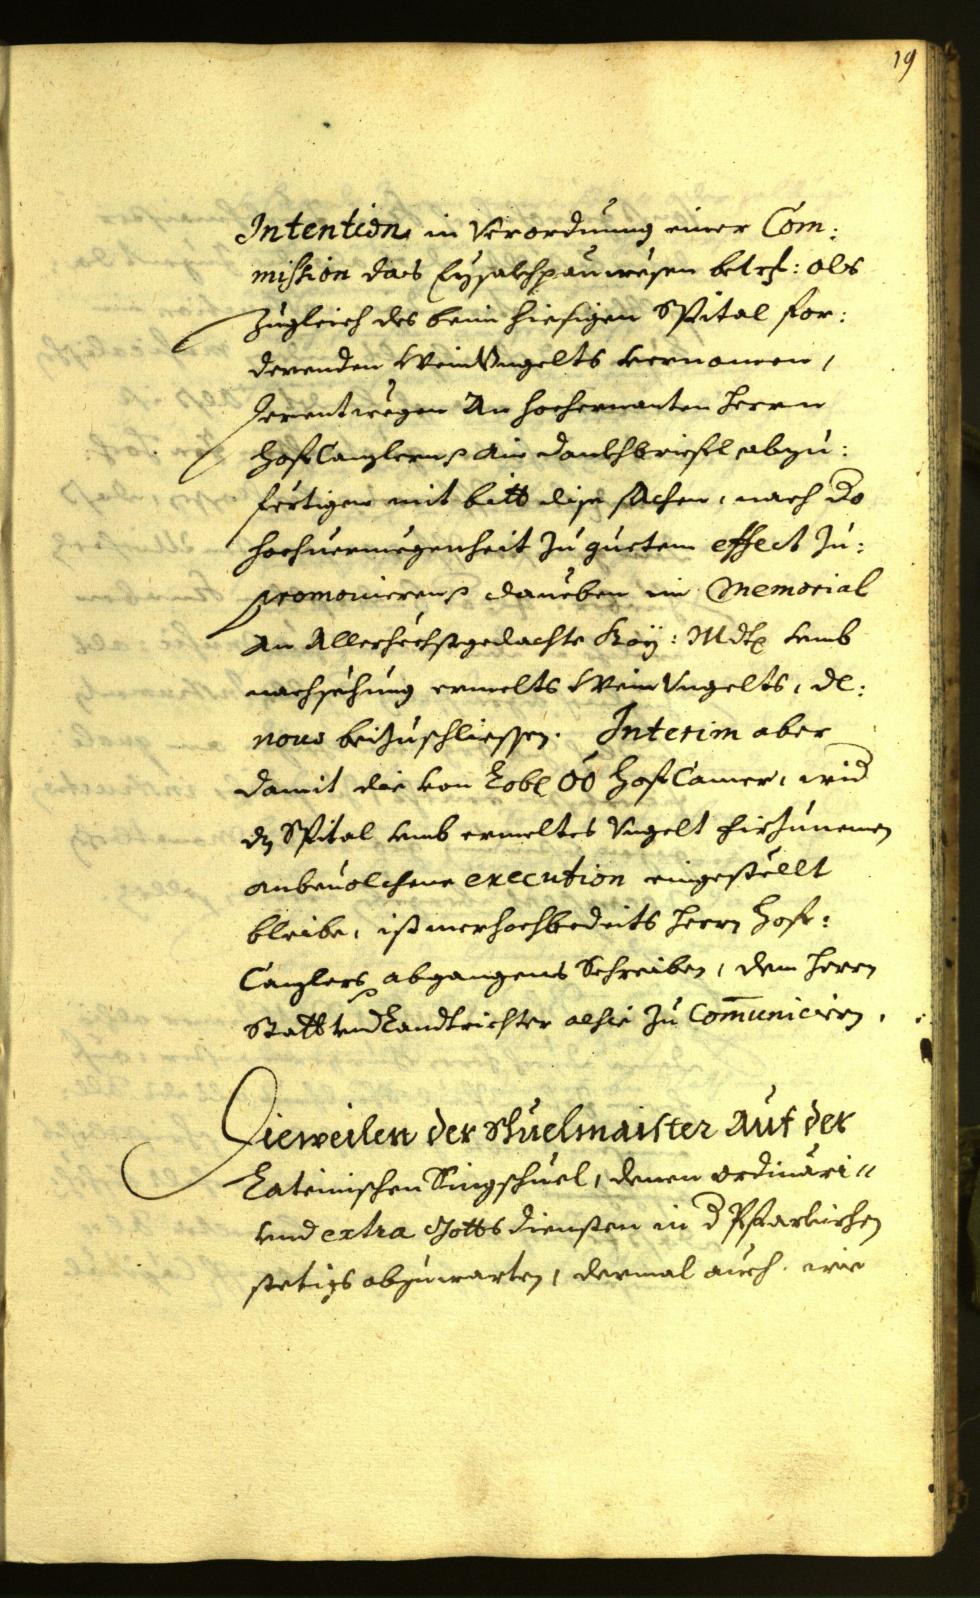 19
Intention, in Verordnung einer Com:
mission das Eysakhpauwesen betrf: als
zugleich des beim hiesigen Spital for:
derenden WeinVngelts vernomen,
derentwegen An hochernanten Herrn
HofCanzlern ain dankhbriefl abzu:
fertigen mit bitt dise sachen, nach Do
hochuermegenheit zu guetem effect zu:
promouieren, daneben ein Memorial
An Allerhechstgedachte Kay: Mdt vmb
nachsehung ermelts WeinVngelts, de:
nouo beizuschliessen. Interim aber
damit die von Lobl OÖ HofCamer, wid
dz Spital vmb ermeltes Vngelt firzunemen
anbeuolchene execution eingestellt
bleibe, ist merhochbedeits Herrn Hof:
Canzlers abgangens Schreiben, dem Herrn
Statt vnd Landtrichter alhie zu Com̄unicirn.
Dieweilen der Schuelmaister Auf der
Lateinischen Singschuel, denen ordinari"
vnd extra Gottsdiensten in d Pfarkirchen
stetigs abzuwarten, dermal auch wie